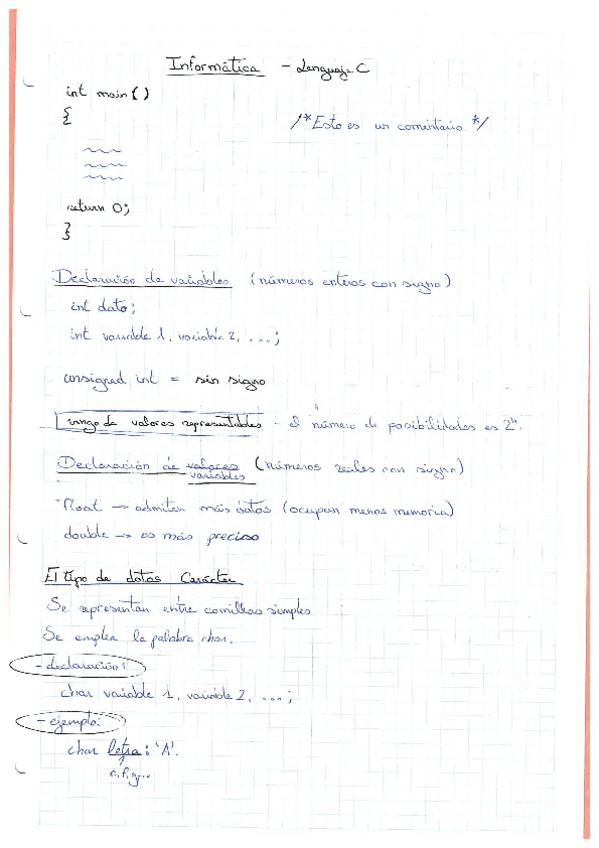 Informática - Lenguaje C
int main()
{
/* Esto es un comentario */
return 0;
}
Declaración de variables (números enteros con signo)
int dato;
int variable 1, variable 2, ...;
unsigned int = sin signo
rango de valores representables - el número de posibilidades es 2ⁿ.
Declaración de valores (números reales con signo)
variables
float → admiten más datos (ocupan menos memoria)
double → es más preciso
El tipo de datos Carácter
Se representan entre comillas simples
Se emplea la palabra char.
- declaración:
char variable 1, variable 2, ...;
- ejemplo:
char letra: 'A'.